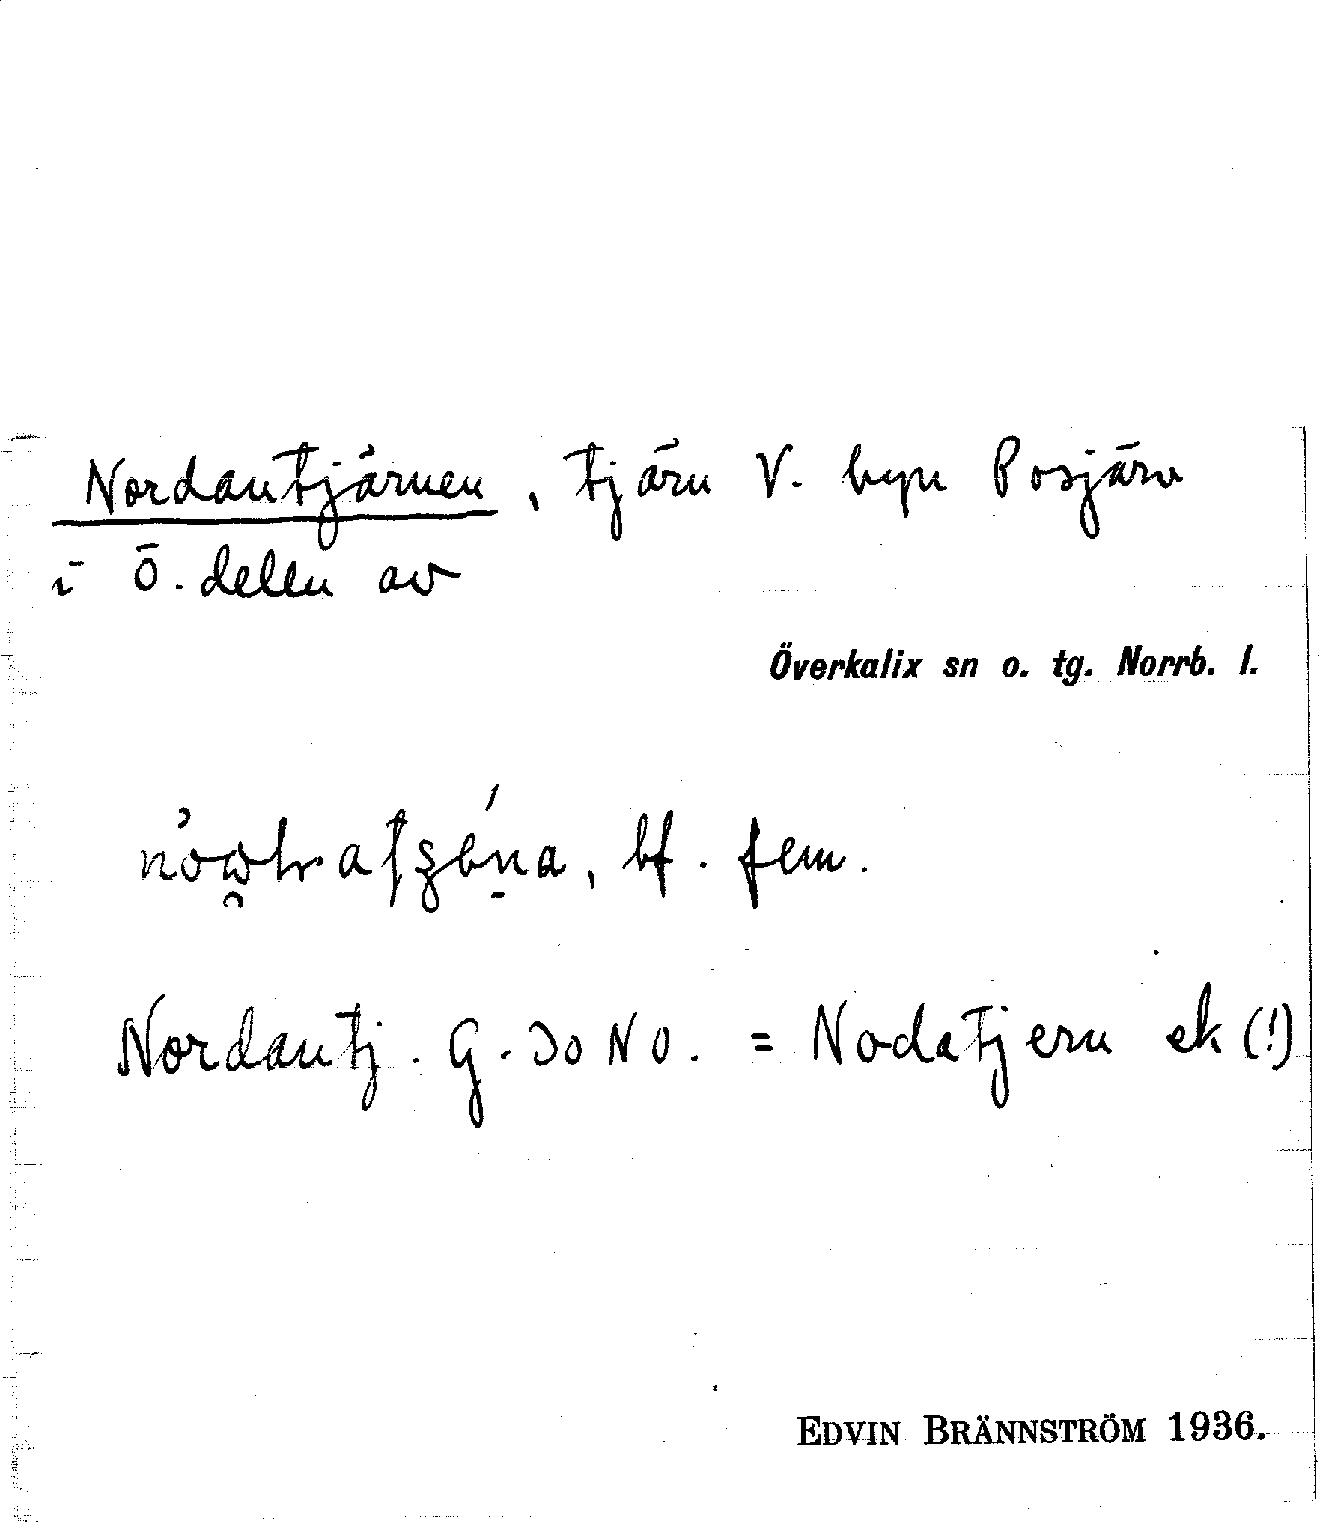 Nordantjärnen, tjärn V. byn Posjärv
i Ö. delen av
Överkalix sn o. tg. Norrb. l.
bf. fem.
Nordantj. G. 30 NO. = Nodatjern ek (!)
EDVIN BRÄNNSTRÖM 1936.